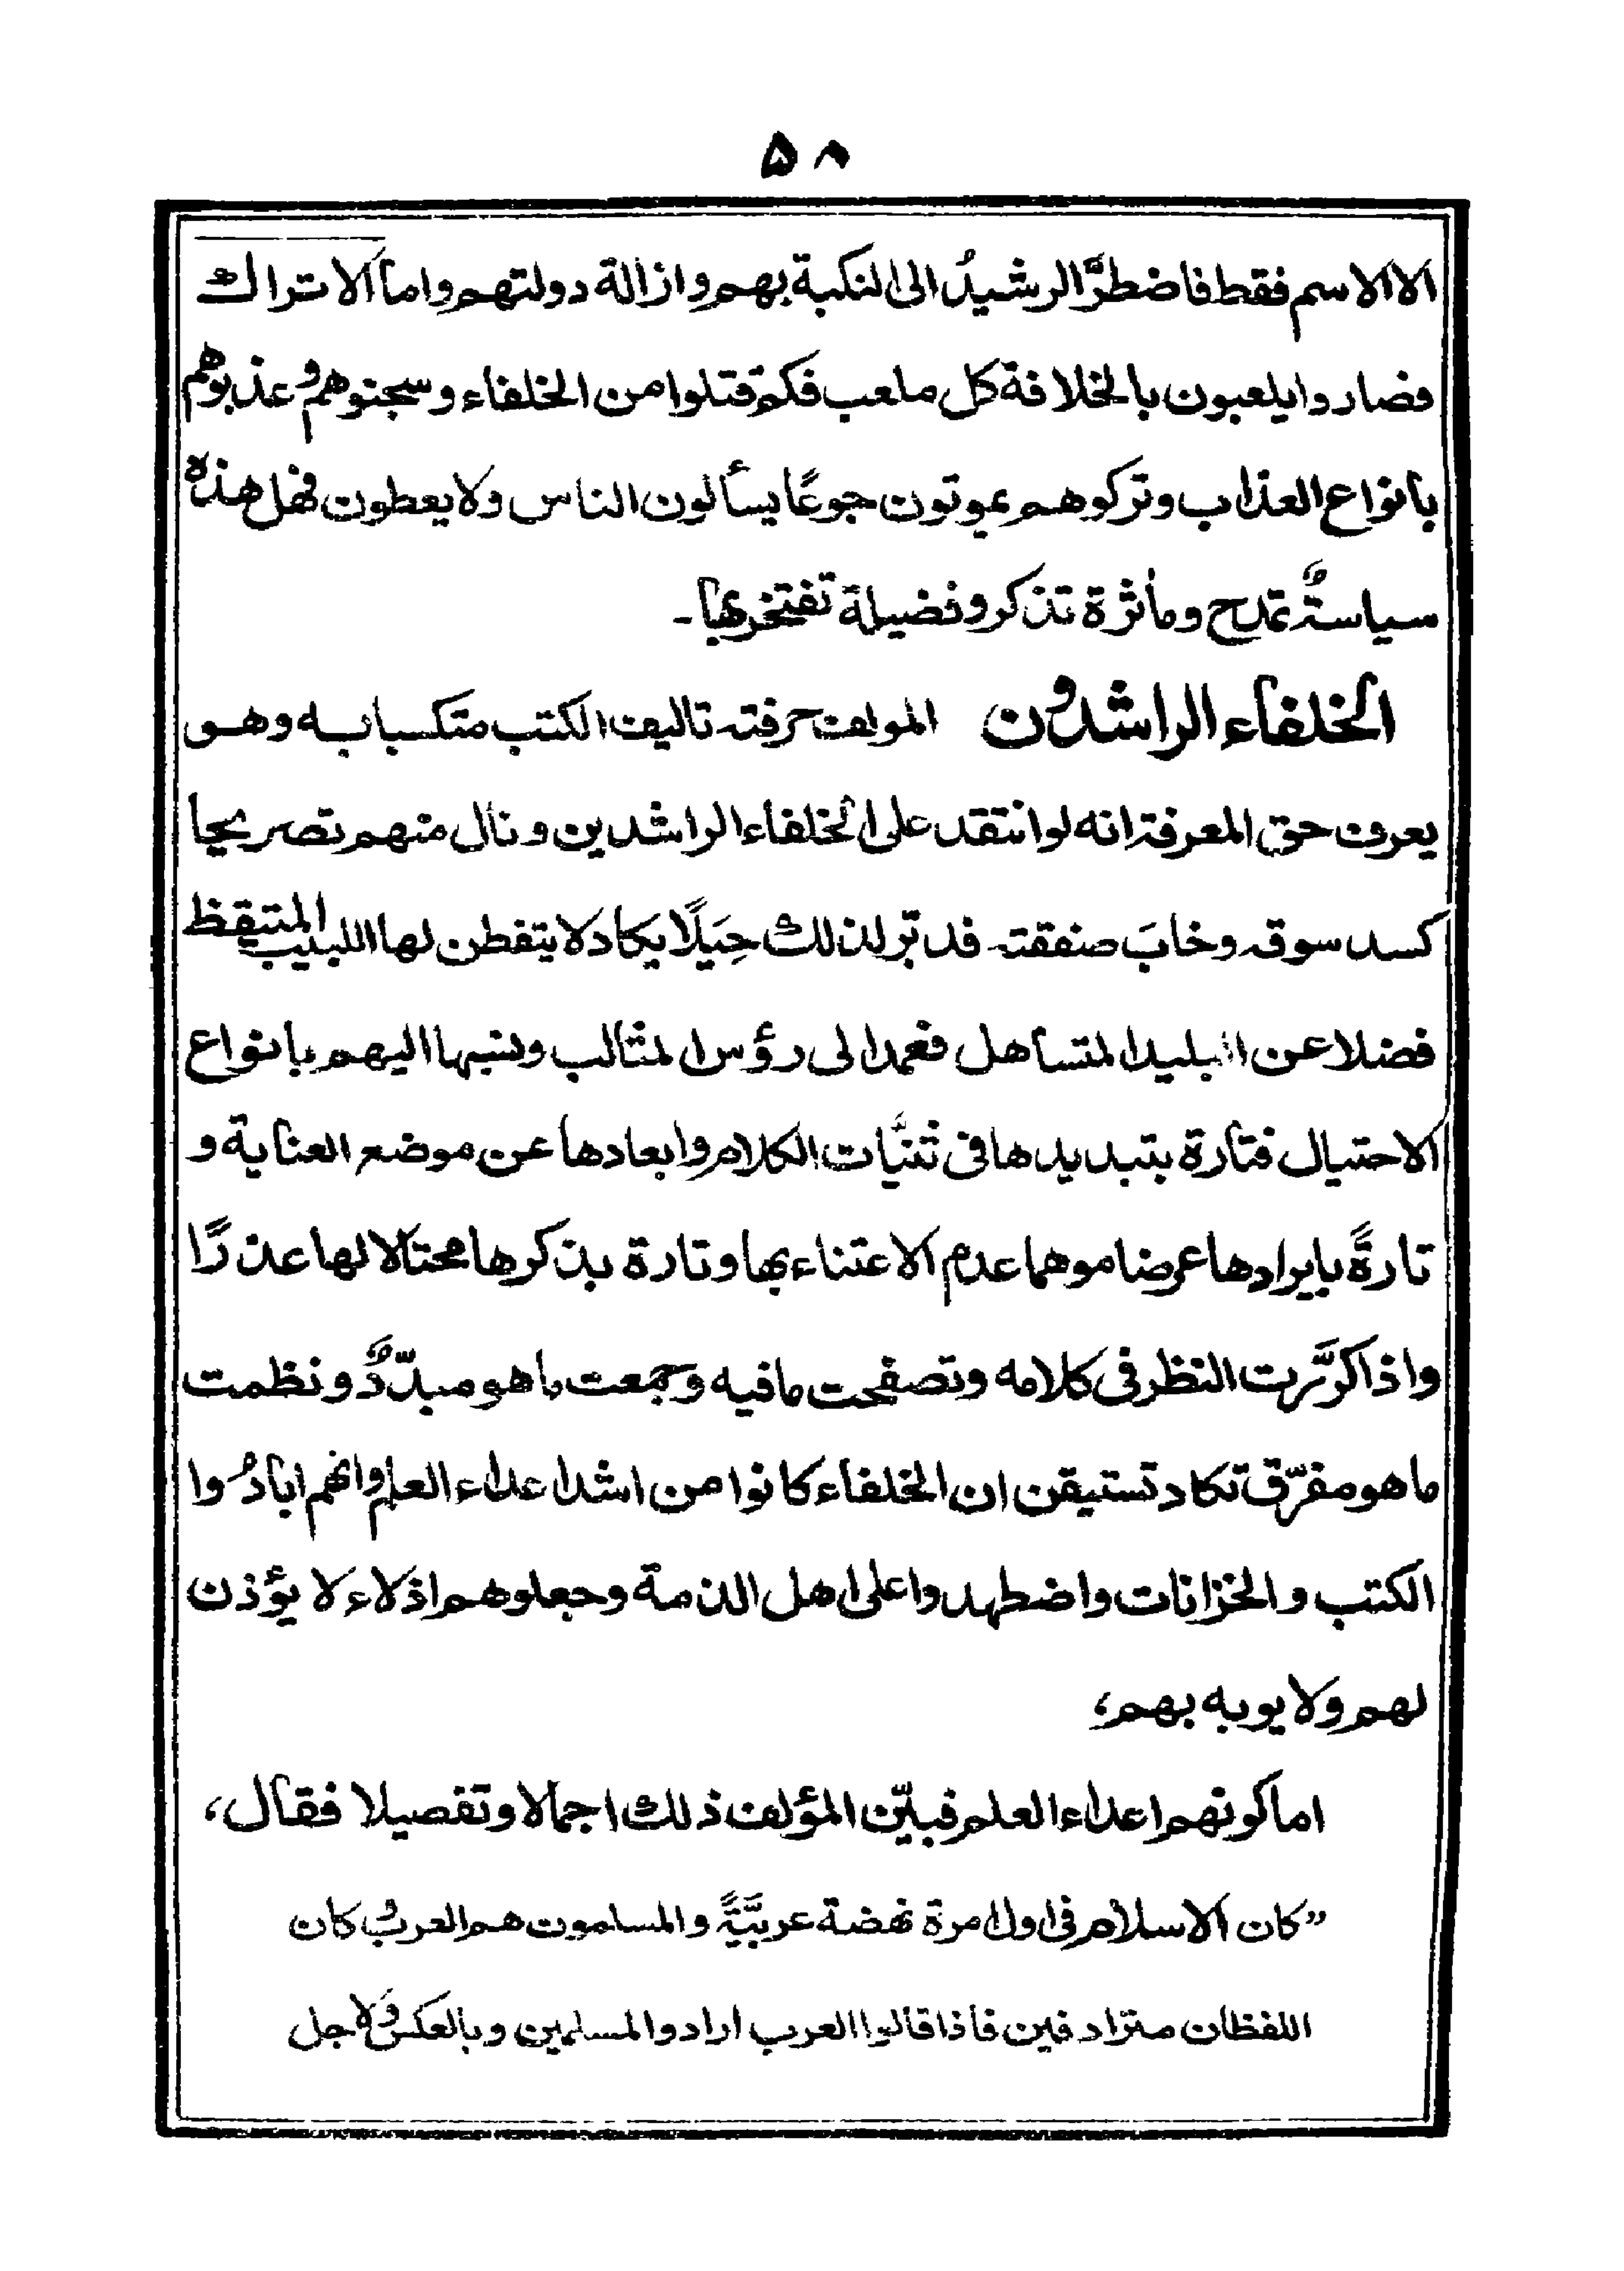 ۵۸
الا الاسم فقط فاضطرَّ الرشيدُ الى النكبة بهم و ازالة دولتهم واما الاتراك
فصاروا يلعبون بالخلافة كل ملعب فكم قتلوا من الخلفاء و سجنوهم و عذبوهم
بانواع العذاب و تركوهم يموتون جوعًا يسألون الناس ولا يعطون فهل هذه
سياسةٌ تمدح ومأثرة تذكر و فضيلة تفتخر بها۔
الخلفاء الراشدون المولف حرفته تاليف الكتب متكسبا به و هو
يعرف حق المعرفة انه لو انتقد على الخلفاء الراشدين و نال منهم تصريحا
كسد سوقه وخابَ صنفقته فدبّر لذلك حِيَلًا يكاد لا يتفطن لها اللبيب المتيقظ
فضلا عن البليد المتساهل فعمد الى رؤس المثالب و نسبها اليهم بانواع
الاحتيال فتارة بتبديدها فى ثنيَّات الكلام و ابعادها عن موضع العناية و
تارةً بايرادها عرضا موهما عدم الاعتناء بها و تارة بذكرها محتالا لها عذرًا
واذا كرَّرت النظر فى كلامه و تصفحت ما فيه و جمعت ما هو مبدّدٌ و نظمت
ما هو مفرّق تكاد تستيقن ان الخلفاء كانوا من اشد اعداء العلم وانهم ابادُوا
الكتب والخزانات واضطهدوا على اهل الذمة وجعلوهم اذلاء لا يؤذن
لهم ولا يوبه بهم،
اما كونهم اعداء العلم فبيّن المؤلف ذلك اجمالا و تفصيلا فقال،
”كان الاسلام فى اول امرة نهضة عربيَّةً والمسلمون هم العربُ كان
اللفظان مترادفين فاذا قالوا العرب ارادوا المسلمين وبالعكس ولاجل